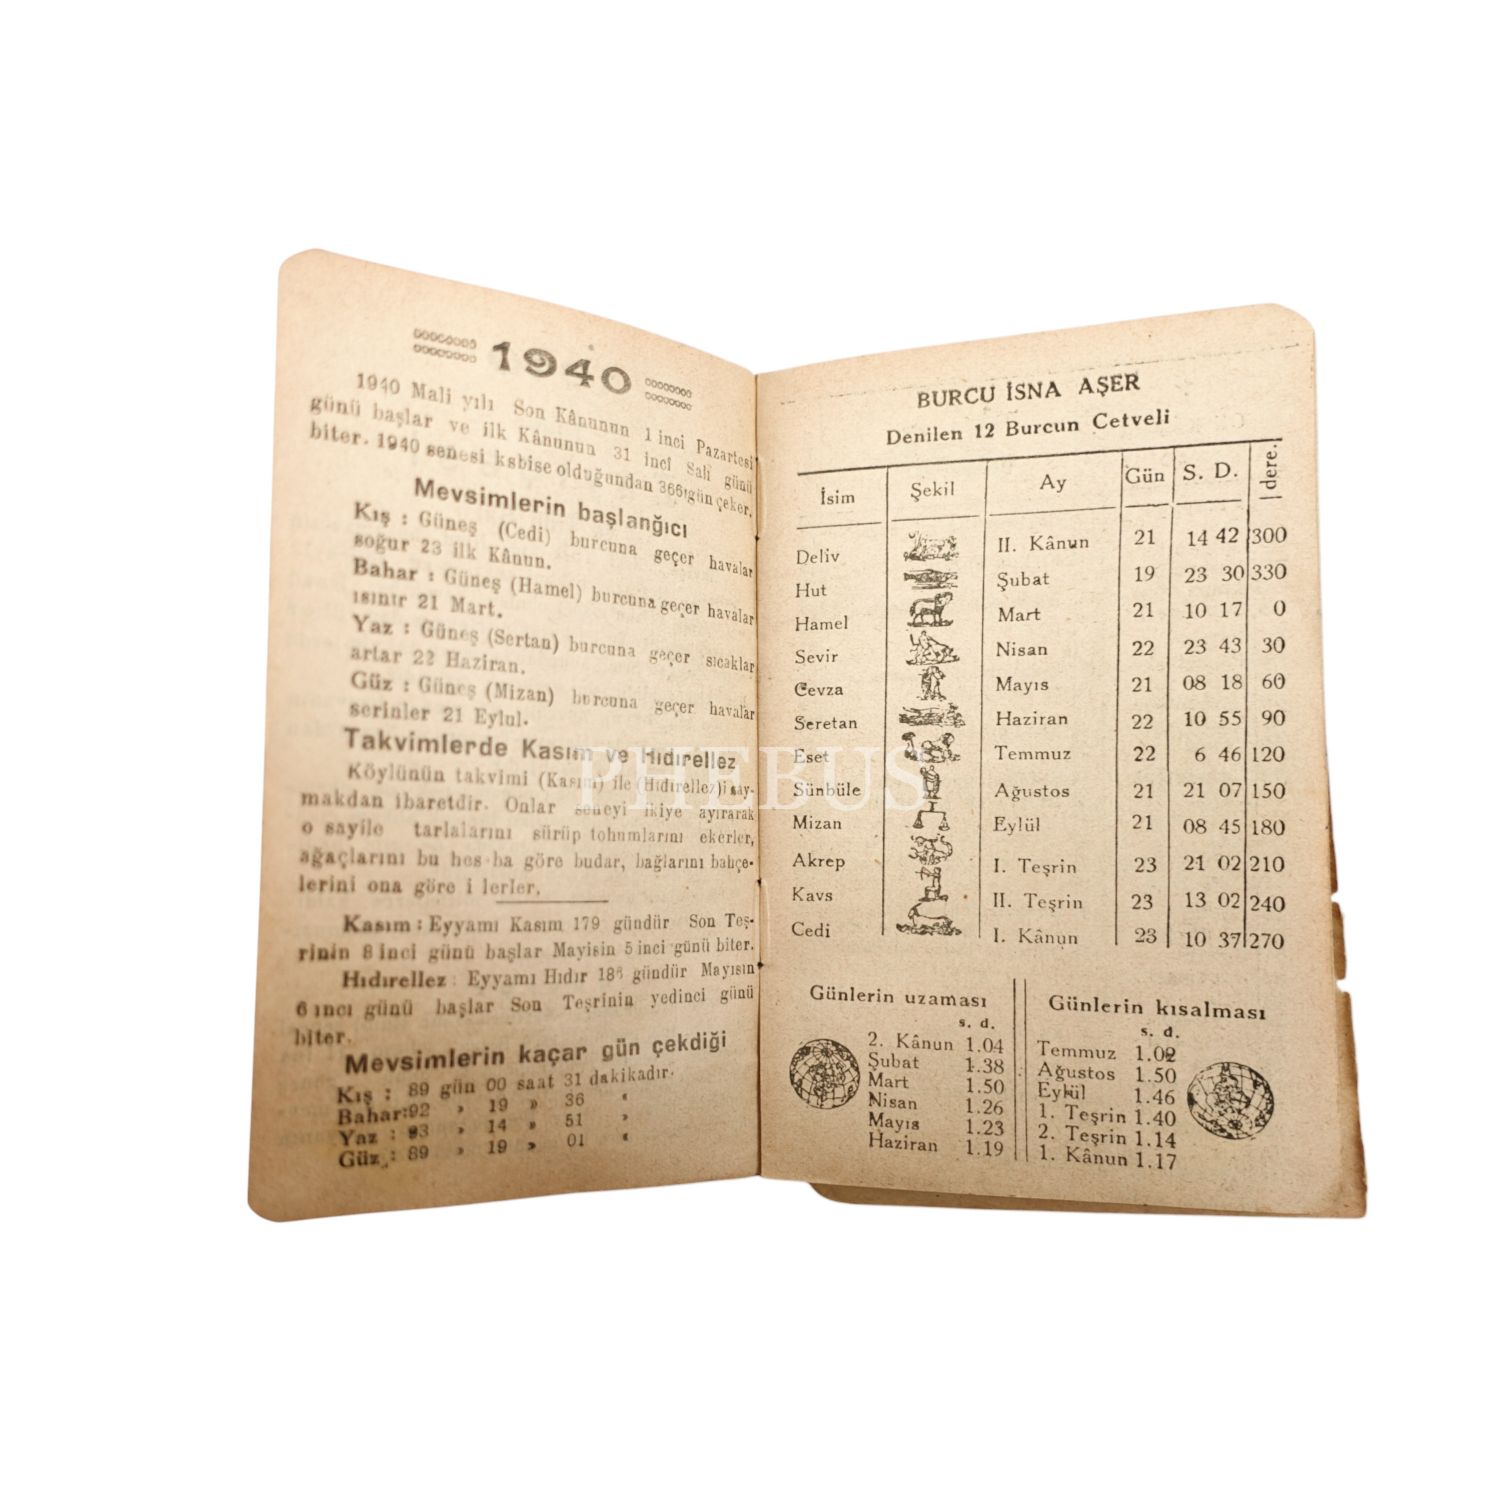 1940
1940 Mali yılı Son Kânunun 1 inci Pazartesi
günü başlar ve ilk Kânunun 31 inci Salı günü
biter. 1940 senesi ksbise olduğundan 366 gün çeker.
Mevsimlerin başlanğıcı
Kış : Güneş (Cedi) burcuna geçer havalar
soğur 23 ilk Kânun.
Bahar : Güneş (Hamel) burcuna geçer havalar
ısınır 21 Mart.
Yaz : Güneş (Sertan) burcuna geçer sıcaklar
artar 22 Haziran.
Güz : Güneş (Mizan) burcuna geçer havalar
serinler 21 Eylul.
Takvimlerde Kasım ve Hıdırellez
Köylünün takvimi (Kasım) ile (Hıdırellez)i say-
makdan ibaretdir. Onlar seneyi ikiye ayırarak
o sayile tarlalarını sürüp tohumlarını ekerler,
ağaçlarını bu hes ba göre budar, bağlarını bahçe-
lerini ona göre i lerler.
Kasım : Eyyamı Kasım 179 gündür Son Teş-
rinin 8 inci günü başlar Mayisin 5 inci günü biter.
Hıdırellez : Eyyamı Hıdır gündür Mayısın
6 ıncı günü başlar Son Teşrinin yedinci günü
biter.
Mevsimlerin kaçar gün çekdiği
Kış : 89 gün 00 saat 31 dakikadır.
Bahar: 92 » 19 » 36 «
Yaz : 93 » 14 » 51 »
Güz : 89 » 19 » 01 «
PHEBUS
BURCU İSNA AŞER
Denilen 12 Burcun Cetveli
İsim Şekil Ay Gün S. D. dere.
Deliv II. Kânun 21 14 42 300
Hut Şubat 19 23 30 330
Hamel Mart 21 10 17 0
Sevir Nisan 22 23 43 30
Cevza Mayıs 21 08 18 60
Seretan Haziran 22 10 55 90
Eset Temmuz 22 6 46 120
Sünbüle Ağustos 21 21 07 150
Mizan Eylül 21 08 45 180
Akrep I. Teşrin 23 21 02 210
Kavs II. Teşrin 23 13 02 240
Cedi I. Kânun 23 10 37 270
Günlerin uzaması
s. d.
2. Kânun 1.04
Şubat 1.38
Mart 1.50
Nisan 1.26
Mayıs 1.23
Haziran 1.19
Günlerin kısalması
s. d.
Temmuz 1.02
Ağustos 1.50
Eylül 1.46
1. Teşrin 1.40
2. Teşrin 1.14
1. Kânun 1.17